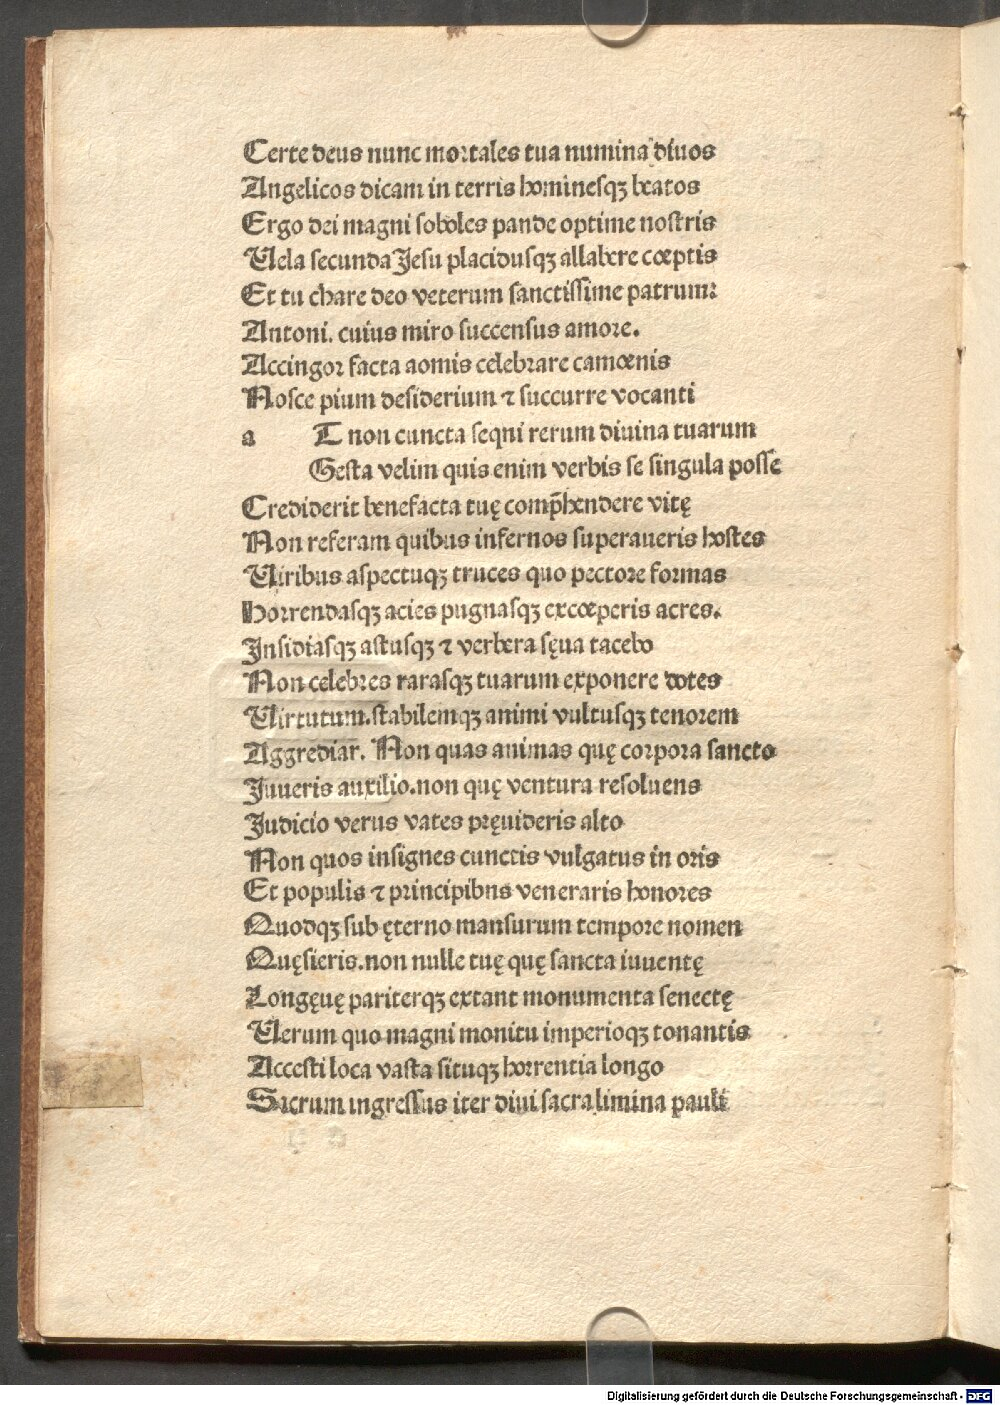 Certe deus nunc mortales tua numina diuos
Angelicos dicam in terris hominesqꝫ beatos
Ergo dei magni soboles pande optime nostris
Uela secunda Jesu placidusqꝫ allabere cœptis
Et tu chare deo veterum sanctissime patrum:
Antoni. cuius miro succensus amore.
Accingor facta aomis celebrare camœnis
Nosce pium desiderium ⁊ succurre vocanti
a T non cuncta seqni rerum diuina tuarum
Gesta velim quis enim verbis se singula posse
Crediderit benefacta tuę comp̄hendere vitę
Non referam quibus infernos superaueris hostes
Uiribus aspectuqꝫ truces quo pectore formas
Horrendasqꝫ acies pugnasqꝫ excœperis acres.
Insidiasqꝫ astusqꝫ ⁊ verbera sęua tacebo
Non celebres rarasqꝫ tuarum exponere dotes
Uirtutum.stabilemqꝫ animi vultusqꝫ tenorem
Aggrediar. Non quas animas quę corpora sancto
Juueris auxilio.non quę ventura resoluens
Judicio verus vates pręuideris alto
Non quos insignes cunctis vulgatus in oris
Et populis ⁊ principibns veneraris honores
Quodqꝫ sub ęterno mansurum tempore nomen
Quęsieris.non nulle tuę quę sancta iuuentę
Longęuę pariterqꝫ extant monumenta senectę
Uerum quo magni monitu imperioqꝫ tonantis
Accesti loca vasta situqꝫ horrentia longo
Sacrum ingressus iter diui sacra limina pauli
Digitalisierung gefördert durch die Deutsche Forschungsgemeinschaft - DFG